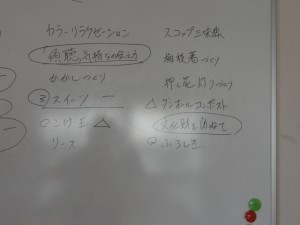 カラーリラクゼーション
「傾聴」気持ちの伝え方
かかしづくり
③スイーツ
こけ玉 △
リース
スコップ三味線
づくり
押し花灯りづくり
△ダンボールコンポスト
文化財を訪ねて
ふろしき